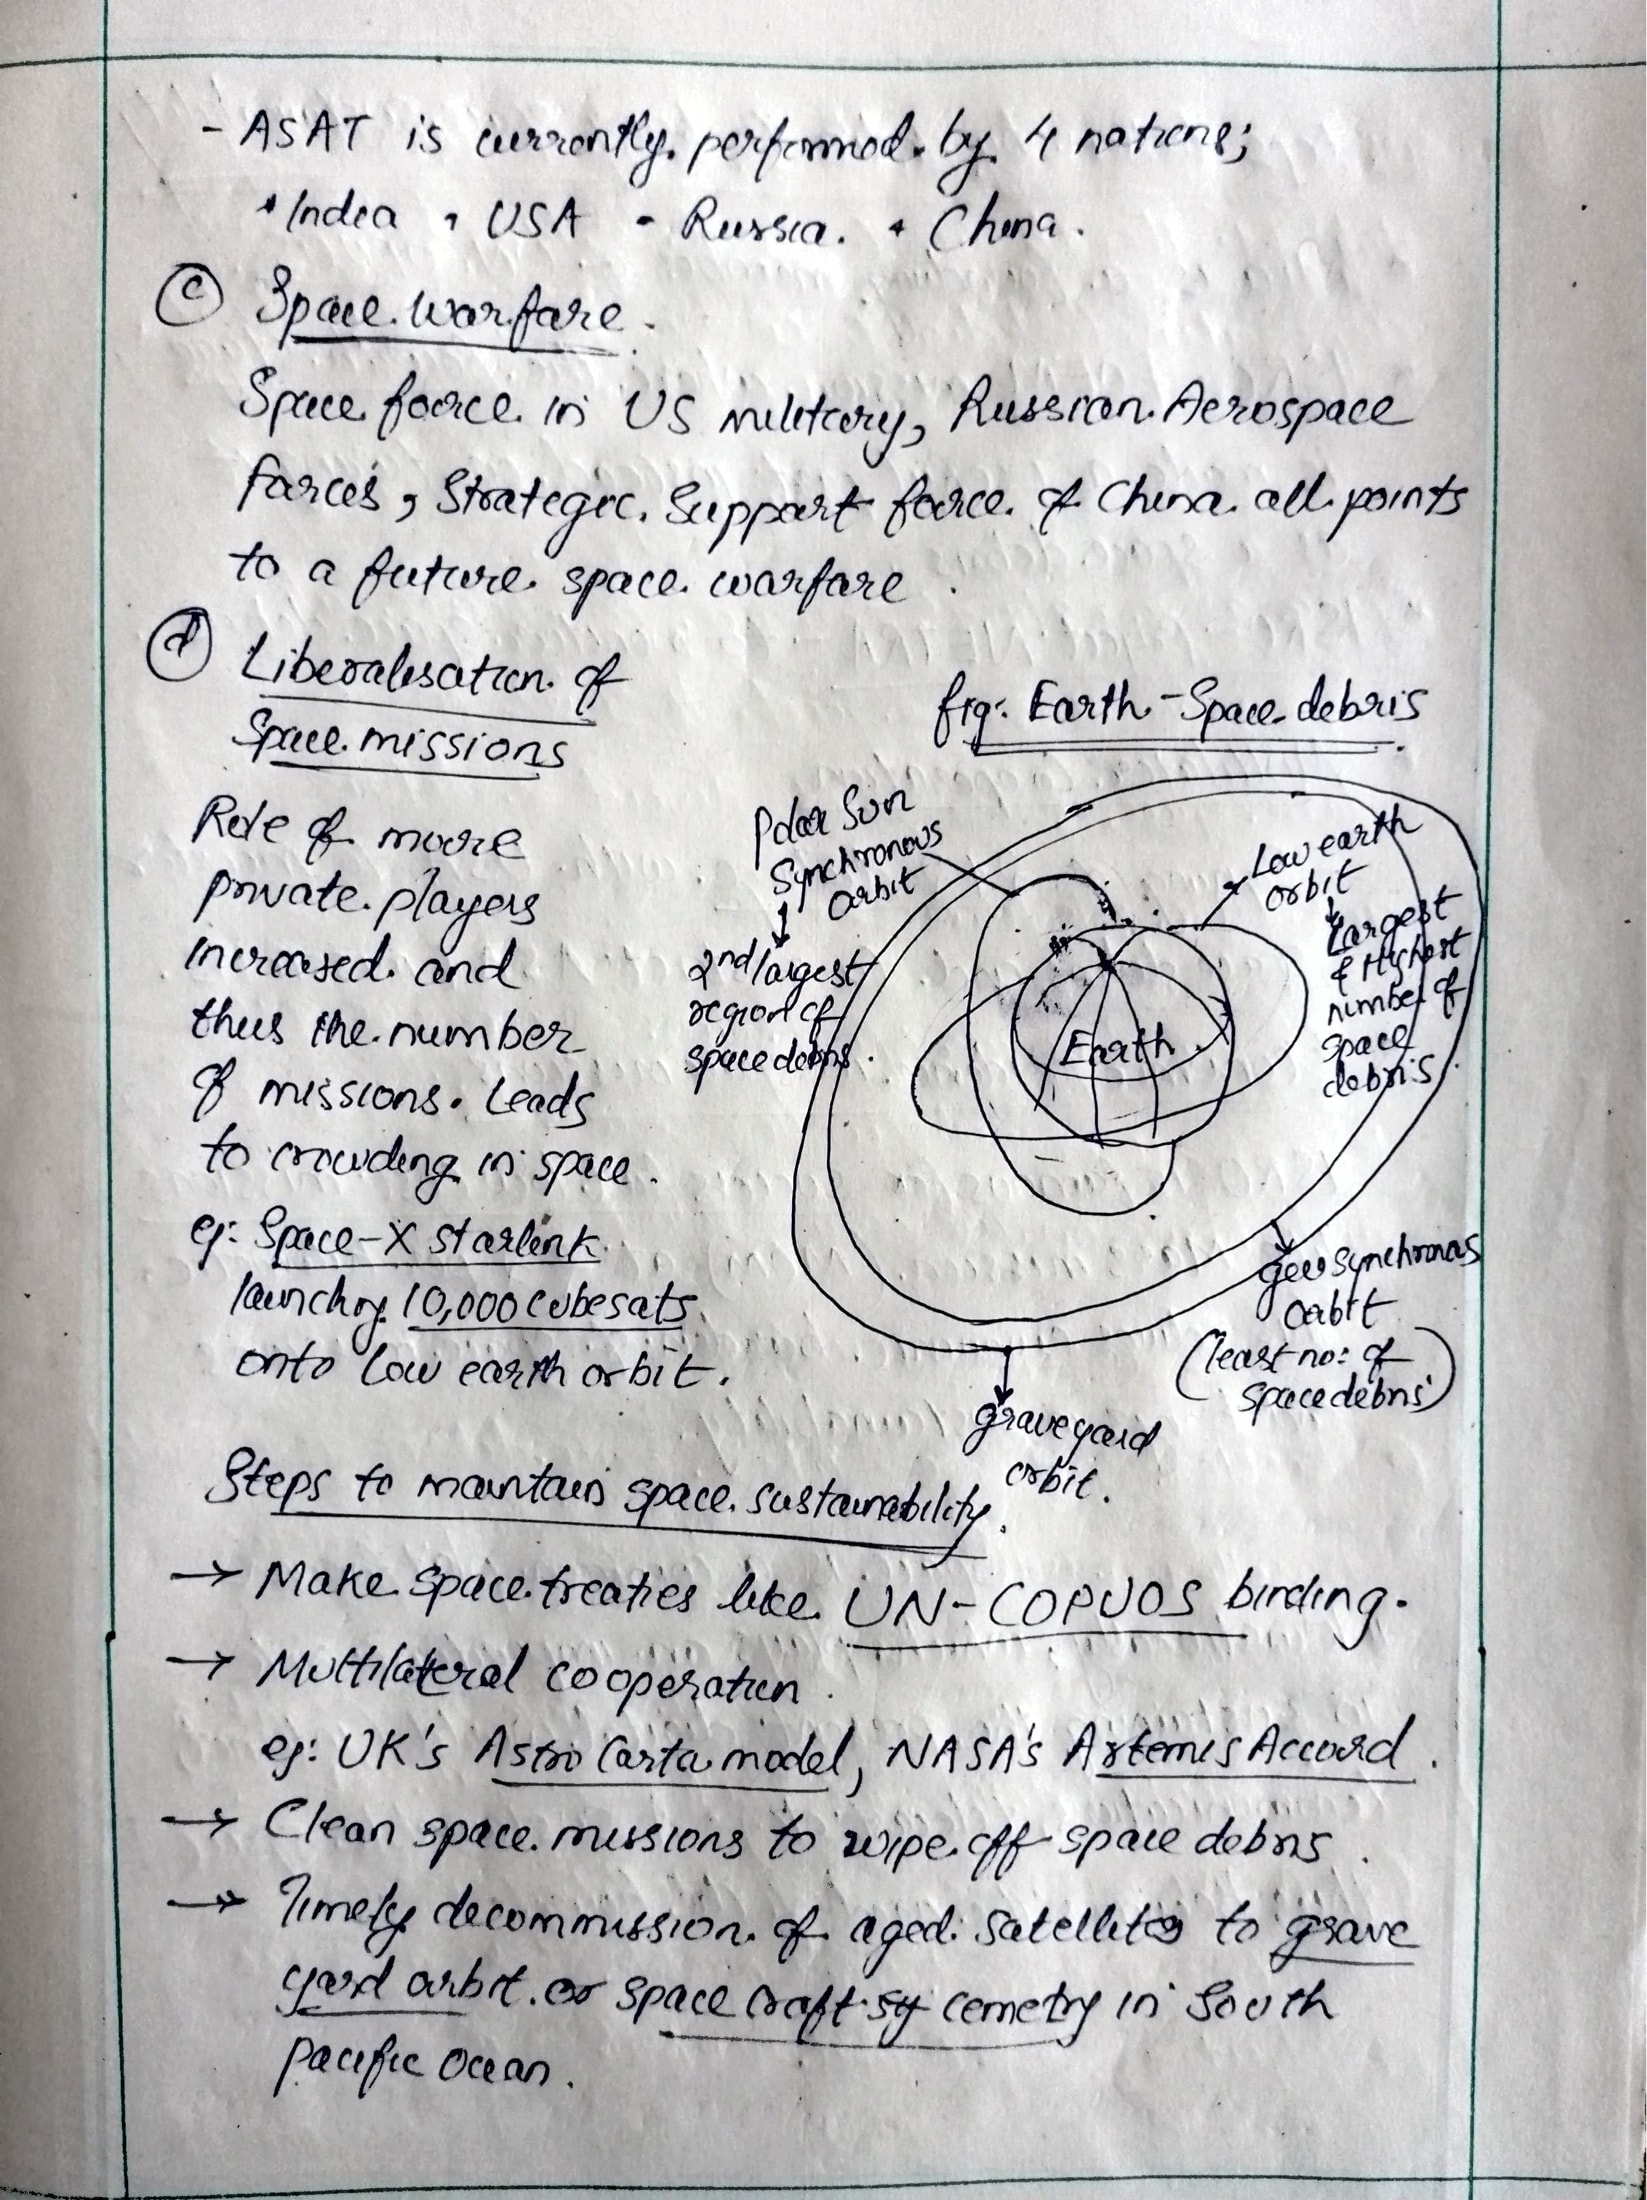 - ASAT is currently performed by 4 nations;
• India • USA • Russia. • China.
(c) Space warfare.
Space force in US military, Russian Aerospace
forces, Strategic Support force of China all points
to a future space warfare.
(d) Liberalisation of
Space missions
Role of more
private players
increased and
thus the number
of missions. Leads
to crowding in space.
eg: Space-X starlink
launching 10,000 cubesats
onto low earth orbit.
fig: Earth-Space debris.
Polar Sun
Synchronous
orbit
↓
2nd largest
region of
space debris.
Low earth
orbit
↓
Largest
& Highest
number of
space
debris.
Earth
geosynchronous
orbit
(least no: of
space debris)
graveyard
orbit.
Steps to maintain space sustainability.
→ Make space treaties like UN-COPUOS binding.
→ Multilateral cooperation.
eg: UK's Astro Carta model, NASA's Artemis Accord.
→ Clean space missions to wipe off space debris.
→ Timely decommission of aged satellites to grave
yard orbit or space craft cemetry in South
pacific Ocean.